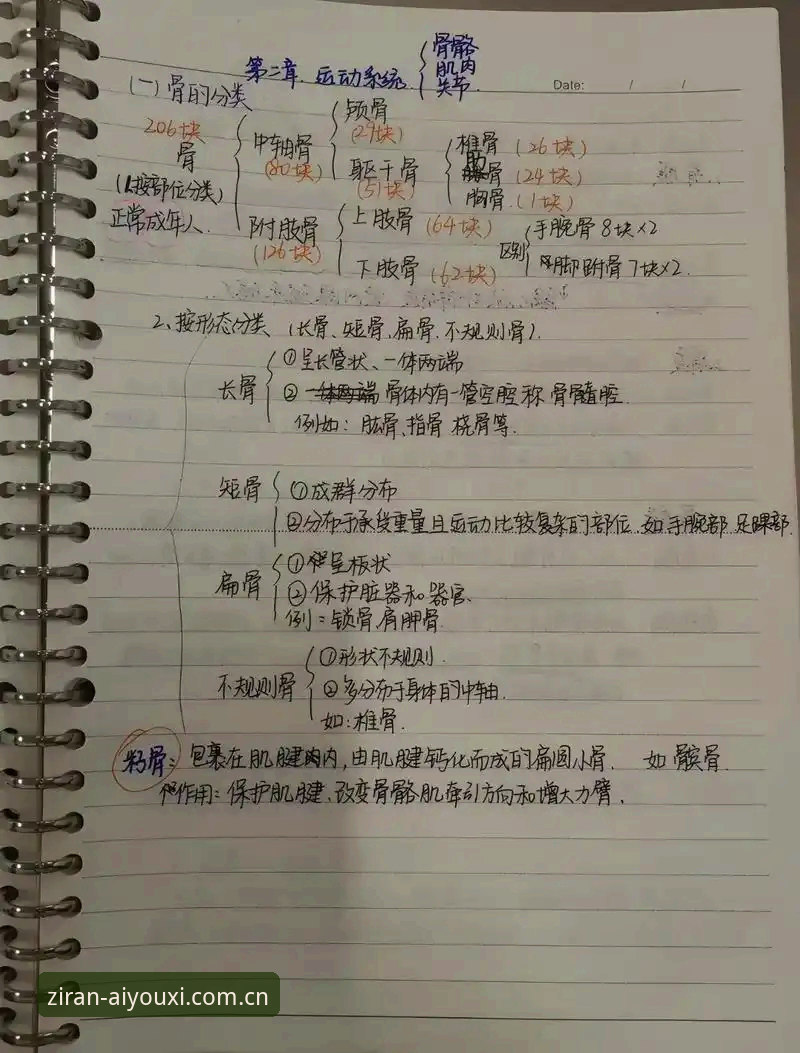 第二章 运动系统 { 骨骼 肌肉 关节
Date: / /
(一) 骨的分类
206块
骨
(1.按部位分类)
正常成年人.
中轴骨
(80块)
颅骨
(29块)
躯干骨
(51块)
椎骨 (26块)
肋骨 (24块)
胸骨 (1块)
附肢骨
(126块)
上肢骨 (64块)
下肢骨 (62块)
区别
手腕骨 8块×2
脚跗骨 7块×2.
2、按形态分类 (长骨、短骨、扁骨、不规则骨).
长骨
①呈长管状、一体两端
② 一体两端 骨体内有一管空腔称 骨髓腔.
例如: 肱骨、指骨 桡骨等.
短骨
①成群分布
②分布于承受重量且运动比较复杂的部位. 如手腕部 足踝部.
扁骨
①呈板状
②保护脏器和器官.
例: 锁骨.肩胛骨.
不规则骨
①形状不规则.
②多分布于身体的中轴.
如:椎骨.
籽骨: 包裹在肌腱内,由肌腱钙化而成的扁圆小骨. 如髌骨.
作用: 保护肌腱、改变骨骼肌牵引方向和增大力臂.
ziran-aiyouxi.com.cn